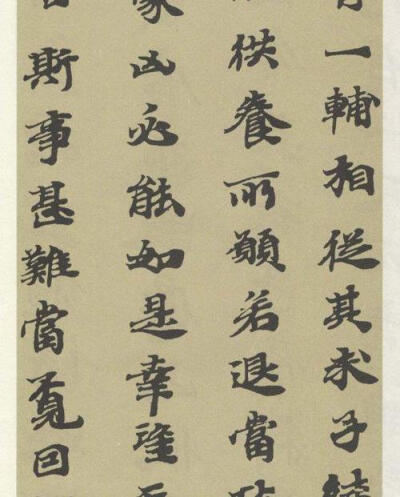 一輔相從其求子
供養所願若退當
凶必能如是幸望
斯事甚難當覓回